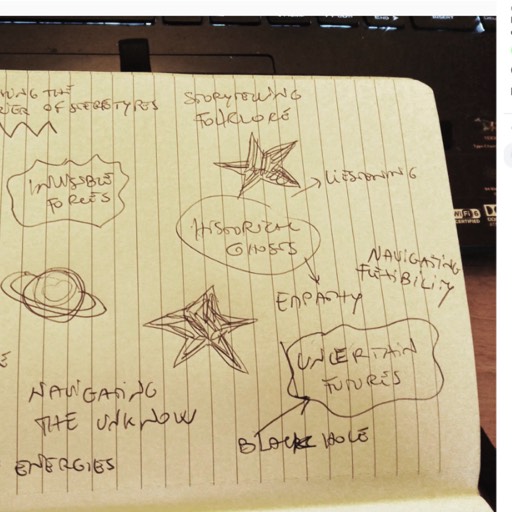 THE
OF STEREOTYPES
STORYTELLING
FOLKLORE
INVISIBLE
FORCES
LISTENING
HISTORICAL
GHOSTS
NAVIGATING
FLEXIBILITY
EMPATHY
UNCERTAIN
FUTURES
NAVIGATING
THE UNKNOW
BLACK HOLE
ENERGIES
WiFi 6
CERTIFIED